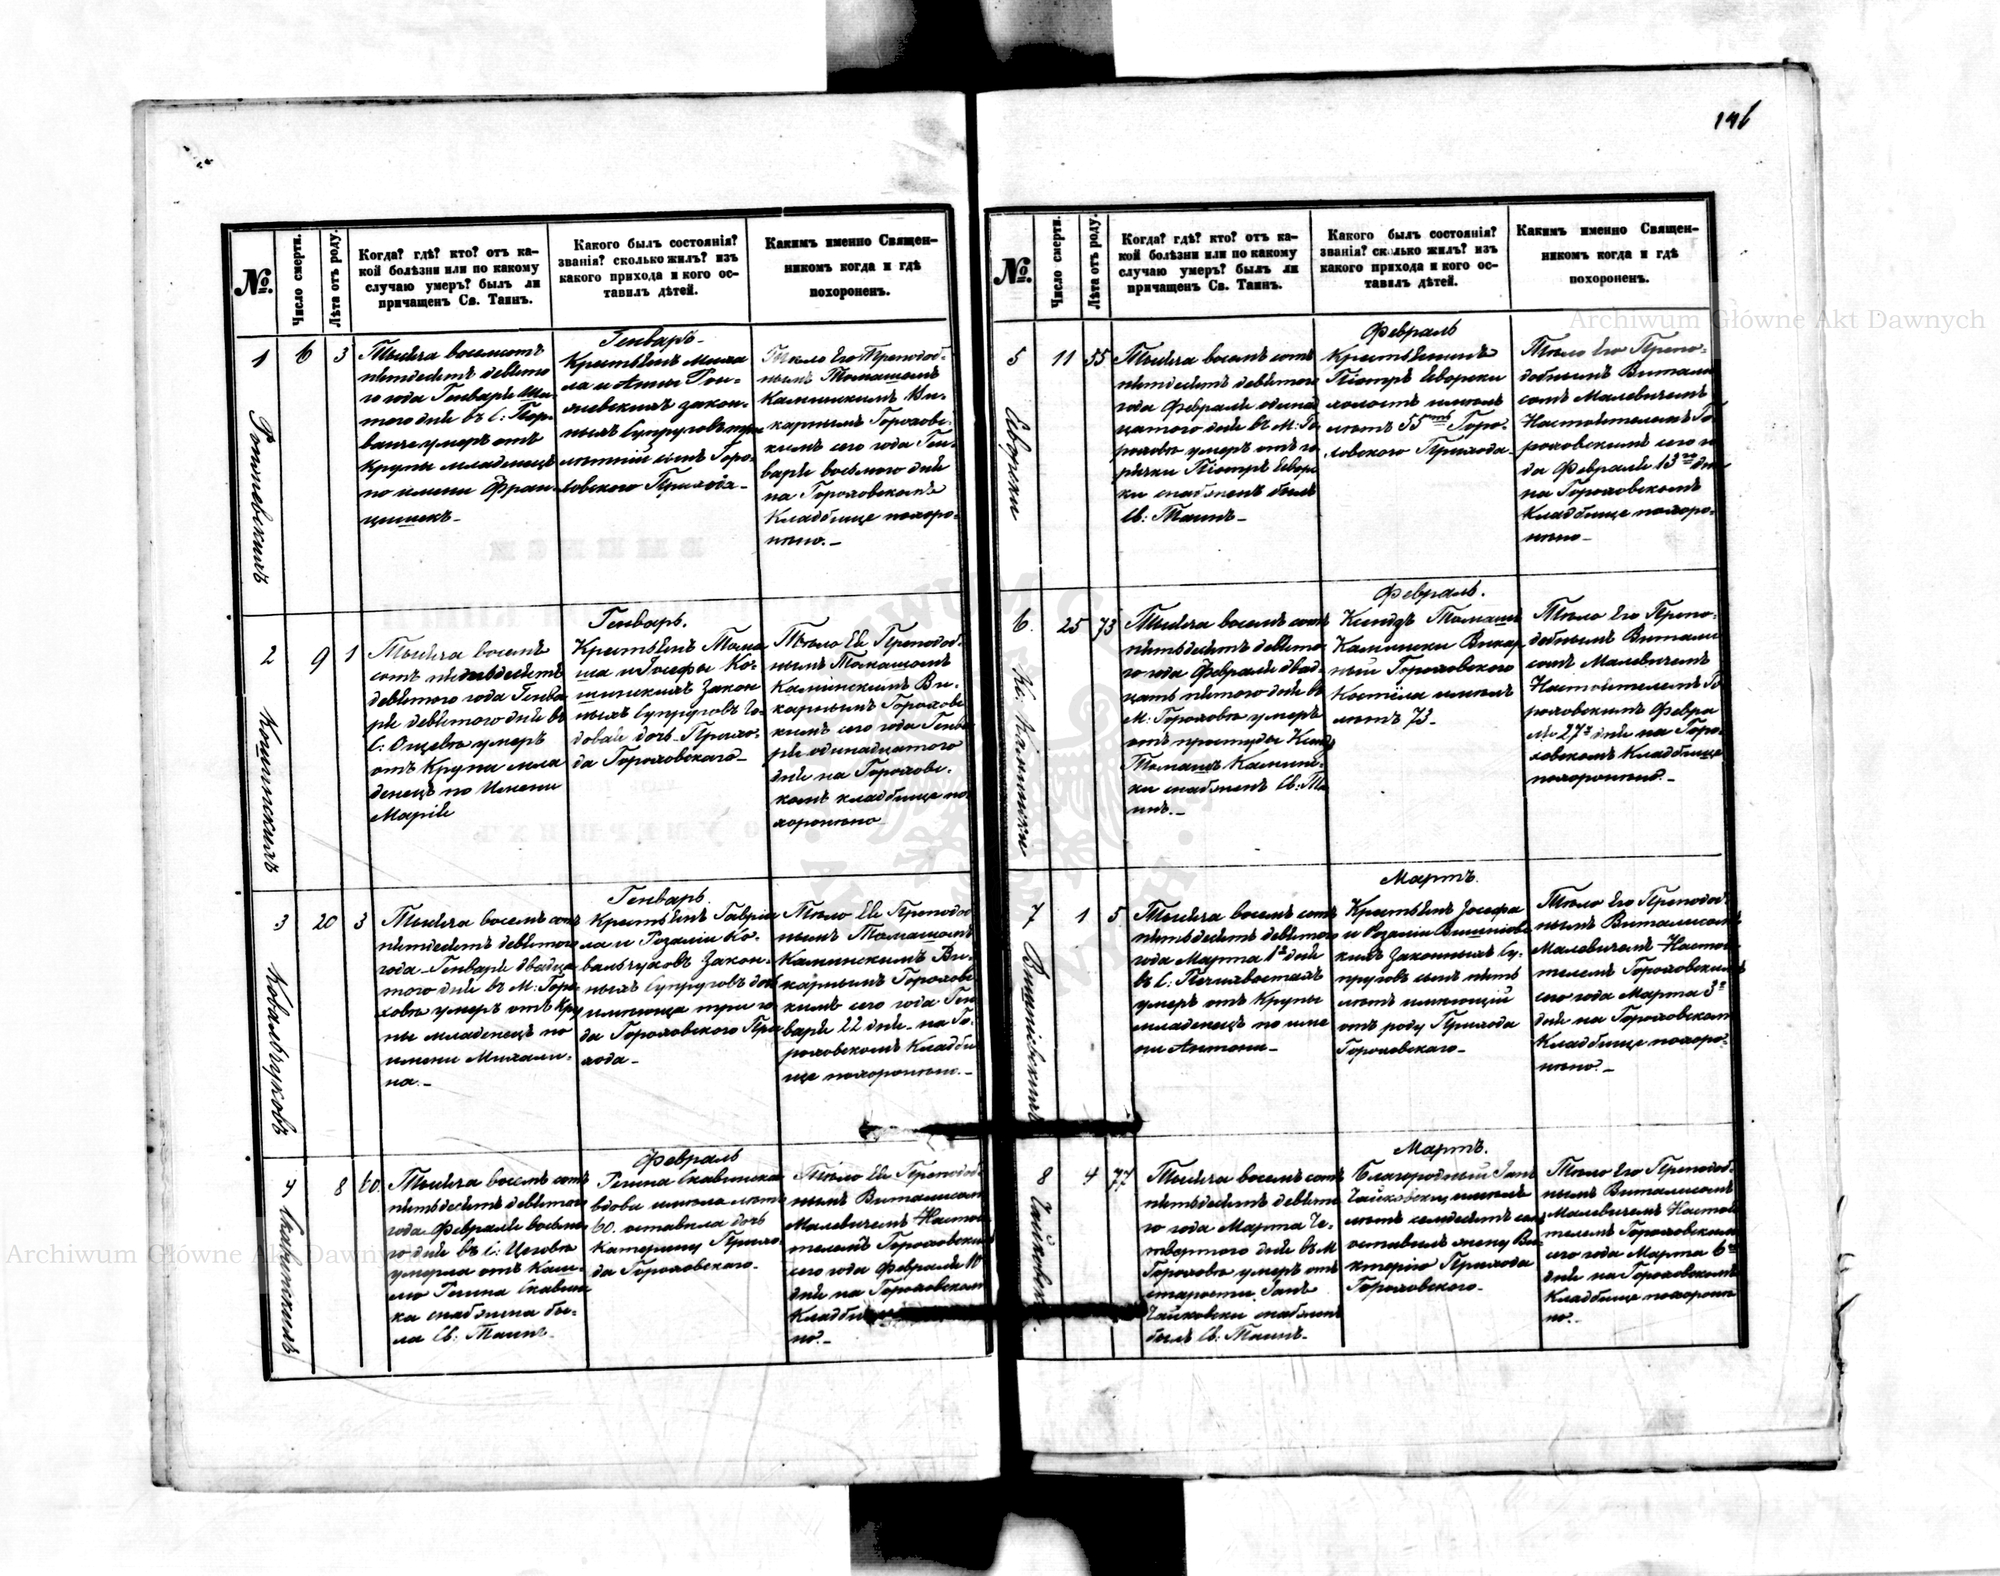 146
№.
Число смерти.
Лѣта отъ роду.
Когда? гдѣ? кто? отъ ка-
кой болѣзни или по какому
случаю умеръ? былъ ли
причащенъ Св. Таинъ.
Какого былъ состоянія?
званія? сколько жилъ? изъ
какого прихода и кого ос-
тавилъ дѣтей.
Какимъ именно Священ-
никомъ когда и гдѣ
похороненъ.
1
6
3
Тысяча восемсотъ
пятдесятъ девято
го года Генваря Шес
того дня въ С:
умеръ отъ
Крупы младенецъ
по имени Фран
цишекъ.
Генварь.
Крестьянъ Миха
ла и Анны
законныхъ
Супруговъ
лѣтній сынъ Горо
ховского Прихода
Тѣло Его Преподоб-
нымъ Томашомъ
Каминскимъ Ви-
карнымъ Горохов
скимъ сего года Ген
варя восьмого дня
на Гороховскомъ
Кладбище похоро-
нено.
2
9
1
Кошинскихъ
Тысяча восемъ
сотъ пятьдесятъ
девятого года Генва
ря девятого дня въ
С: Ощевѣ умеръ
отъ Крупа мла
денецъ по Имени
Марія
Генварь.
Крестьянъ Тома
ша и Іосефы Ко-
шинскихъ Закон
ныхъ Супруговъ го-
довая дочь Прихо-
да Гороховскаго
Тѣло Ея Преподоб
нымъ Томашомъ
Каминскимъ Ви-
карнымъ Горохов
скимъ сего года Генва
ря одинадцатого
дня на Горохов-
комъ кладбище по
хоронено
3
20
3
Ковальчуковъ
Тысяча восемъ сотъ
пятдесятъ девятого
года Генваря двадца
того дня въ М: Горо
ховѣ умеръ отъ Кру
пы младенецъ по
имени Михали-
на.
Генварь.
Крестьянъ Гаврiи
ла и Розаліи Ко-
вальчуковъ Закон-
ныхъ Супруговъ доч
имѣюща три го
да Гороховского При
хода
Тѣло Ея Преподоб
нымъ Томашомъ
Каминскимъ Ви-
карнымъ Горохов
скимъ сего года Ген
варя 22 дня на Го-
роховскомъ Кладби
ще похоронено.
4
8
60
Скавинскихъ
Тысяча восемъ сотъ
пятьдесятъ девятого
года Февраля восьмо
го дня въ С: Цеговѣ
умерла отъ Каш-
лю Регина Скавинс
ка снабжена бы-
ла Св: Таинъ
Февраль
Регина Скавинска
вдова имѣла лѣтъ
60. оставила дочь
Катерину Прихо-
да Гороховскаго
Тѣло Ея Преподоб
нымъ Виталисомъ
Малевичемъ Насто
телемъ Гороховским
сего года Февраля 10
дня на Гороховском
Кладби
но.
№.
Число смерти.
Лѣта отъ роду.
Когда? гдѣ? кто? отъ ка-
кой болѣзни или по какому
случаю умеръ? былъ ли
причащенъ Св. Таинъ.
Какого былъ состоянія?
званія? сколько жилъ? изъ
какого прихода и кого ос-
тавилъ дѣтей.
Какимъ именно Священ-
никомъ когда и гдѣ
похороненъ.
5
11
55
Яворски
Тысяча восемъ сотъ
пятдесятъ девятого
года Февраля одинад
цатого дня въ М: Го
роховѣ умеръ отъ го
рячки Піотръ Явор
ки снабженъ былъ
Св: Таинъ
Февраль
Крестьянинъ
Піотръ Яворски
холостъ имѣлъ
лѣтъ 55ть Горо-
ховского Прихода
Тѣло Его Препо-
добнымъ Витали
сомъ Малевичемъ
Настоятелемъ Го
роховскимъ сего го
да Февраля 13го дня
на Гороховскомъ
Кладбище похоро-
нено
6.
25
73
Кс: Камински
Тысяча восемъ сотъ
пятьдесятъ девято
го года Февраля двад
цать пятого дня въ
М: Гороховѣ умеръ
отъ простуды Ксенд
Томашъ Камин-
ки снабженъ Св: Та
инъ.
Февраль.
Ксендзъ Томашъ
Камински Викар
ный Гороховского
Костёла имѣлъ
лѣтъ 73
Тѣло Его Препо-
добнымъ Витали
сомъ Малевичемъ
Настоятелемъ Го
роховскимъ Февра
ля 27 дня на Горо-
ховскомъ Кладбище
похоронено.
7
1
5
Вишніевскихъ
Тысяча восемъ сотъ
пятьдесятъ девятого
года Марта 1 дня
въ С: Печихвостахъ
умеръ отъ Крупы
младенецъ по име
ни Антони
Мартъ.
Крестьянъ Іосефа
и Розаліи Вишніевс
кихъ Законныхъ Су-
пруговъ сынъ пять
лѣтъ имѣющій
отъ роду Прихода
Гороховскаго
Тѣло Его Преподоб
нымъ Виталисомъ
Малевичемъ Насто
телемъ Гороховскимъ
сего года Марта 3
дня на Гороховском
Кладбище похоро-
нено.
8
4
77
Чайковски
Тысяча восемъ сотъ
пятьдесятъ девято
го года Марта Че-
твертого дня въ М
Гороховѣ умеръ отъ
старости Янъ
Чайковски снабжен
былъ Св: Таинъ
Мартъ.
Благородный Янъ
Чайковски имѣлъ
лѣтъ семдесятъ сем
оставилъ жену Ви-
кторію Прихода
Гороховского
Тѣло Его Преподоб
нымъ Виталисомъ
Малевичемъ Насто
телемъ Гороховским
сего года Марта 6
дня на Гороховскомъ
Кладбище похороне
но.
Archiwum Główne Akt Dawnych
Archiwum Główne Akt Dawnych